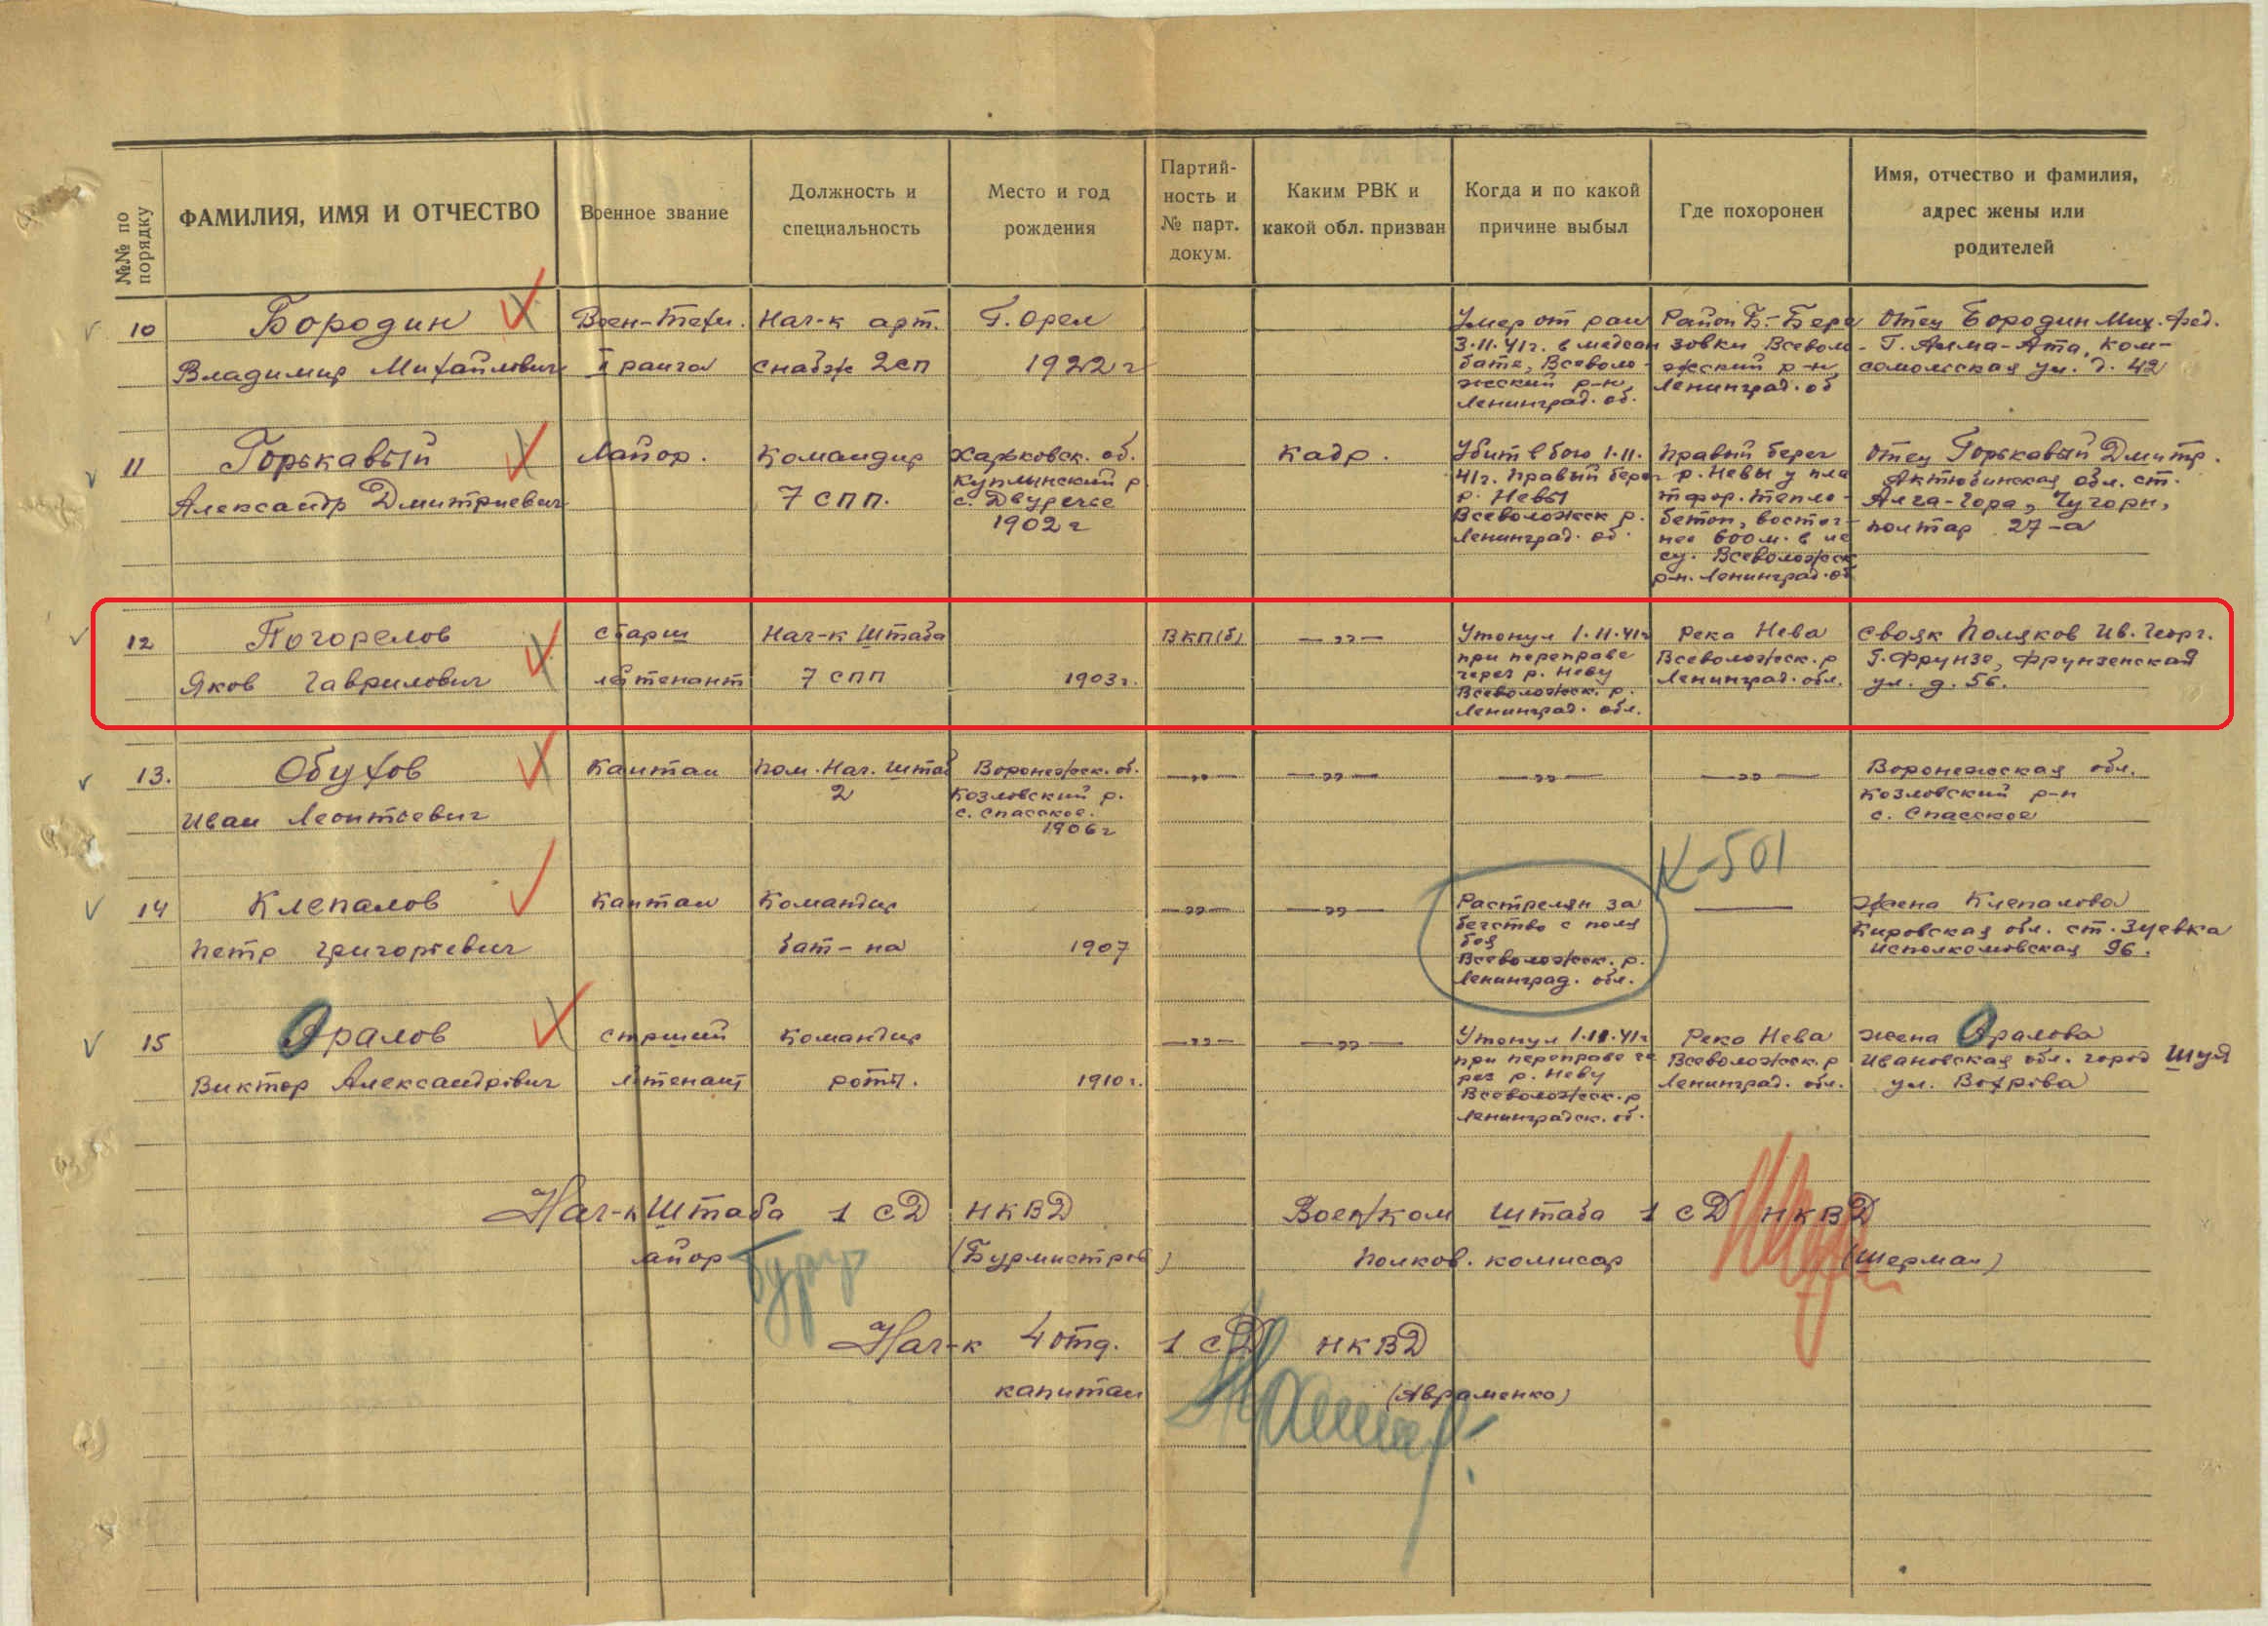 №№ по порядку
ФАМИЛИЯ, ИМЯ И ОТЧЕСТВО
Военное звание
Должность и
специальность
Место и год
рождения
Партий-
ность и
№ парт.
докум.
Каким РВК и
какой обл. призван
Когда и по какой
причине выбыл
Где похоронен
Имя, отчество и фамилия,
адрес жены или
родителей
10
Бородин
Владимир Михайлович
Воен-Техн.
II ранга
Нач-к арт.
снабж 2сп
Г. Орел
1922г
Умер от ран
3.11.41г. в медсан
бате, Всеволо-
жский р-н,
Ленинград. об.
Район Б.-Бере
зовки Всевол-
жский р-н
Ленинград. об
Отец Бородин Мих. Фед.
Г. Алма-Ата, Ком-
сомолская ул. д. 42
11
Горькавый
Александр Дмитриевич
Майор.
Командир
7 СПП.
Харьковск. об.
Куплинский р
с. Двуречье
1902г
Кадр.
Убит в бою 1.11.
41г. Правый берег
р. Невы
Всеволожск р.
Ленинград. об.
Правый берег
р. Невы у пла
тфор. Тепло-
бетон, восточ-
нее 600м. в ле
су. Всеволожск
р-н. Ленинград. об
Отец Горькавый Дмитр.
Актюбинская обл. ст.
Алга-Гора, Чугорн,
полтар 27-а
12
Погорелов
Яков Гаврилович
Старш
лейтенант
Нач-к Штаба
7 СПП
1903г.
ВКП(б)
—„—
Утонул 1.11.41г
при переправе
через р. Неву
Всеволожск. р.
Ленинград. обл.
Река Нева
Всеволожск. р
Ленинград. обл.
Свояк Поляков Ив. Георг.
Г. Фрунзе, Фрунзенская
ул. д. 56.
13.
Обухов
Иван Леонтьевич
Капитан
Пом. Нач. Штаб
2
Воронежск. об.
Козловский р.
с. Спасское.
1906г
—„—
—„—
—„—
—„—
Воронежская обл.
Козловский р-н
с. Спасское
14
Клепалов
Петр Григорьевич
Капитан
Командир
бат-на
1907
—„—
—„—
Растрелян за
бегство с поля
боя
Всеволожск. р.
Ленинград. обл.
К-501
Жена Клепалова
Кировская обл. ст. Зуевка
Исполкомовская 96.
15
Оралов
Виктор Александрович
Стрший
лтенант
Командир
роты.
1910г.
—„—
—„—
Утонул 1.11.41г
при переправе че
рез р. Неву
Всеволожск. р
Ленинградск. об.
Река Нева
Всеволожск. р
Ленинград. обл.
Жена Оралова
Ивановская обл. город Шуя
ул. Боярова
Нач-к Штаба 1 СД НКВД
майор (Бурмистров)
Воен/ком Штаба 1 СД НКВД
Полков. комисар (Шерман)
Нач-к 4 отд. 1 СД НКВД
капитан (Авраменко)